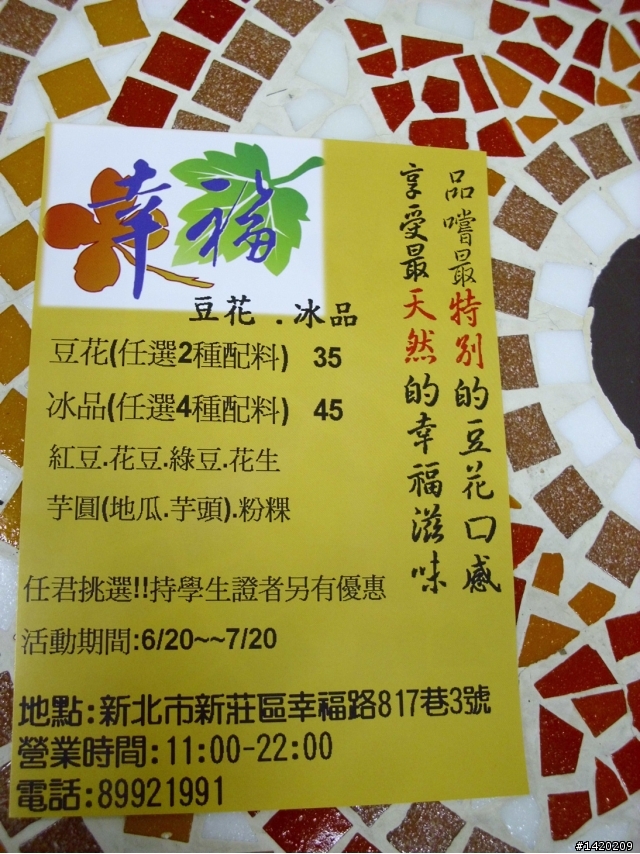 幸福
豆花.冰品
品嚐最特別的豆花口感
享受最天然的幸福滋味
豆花(任選2種配料) 35
冰品(任選4種配料) 45
紅豆.花豆.綠豆.花生
芋圓(地瓜.芋頭).粉粿
任君挑選!!持學生證者另有優惠
活動期間:6/20~~7/20
地點:新北市新莊區幸福路817巷3號
營業時間:11:00-22:00
電話:89921991
#1420209